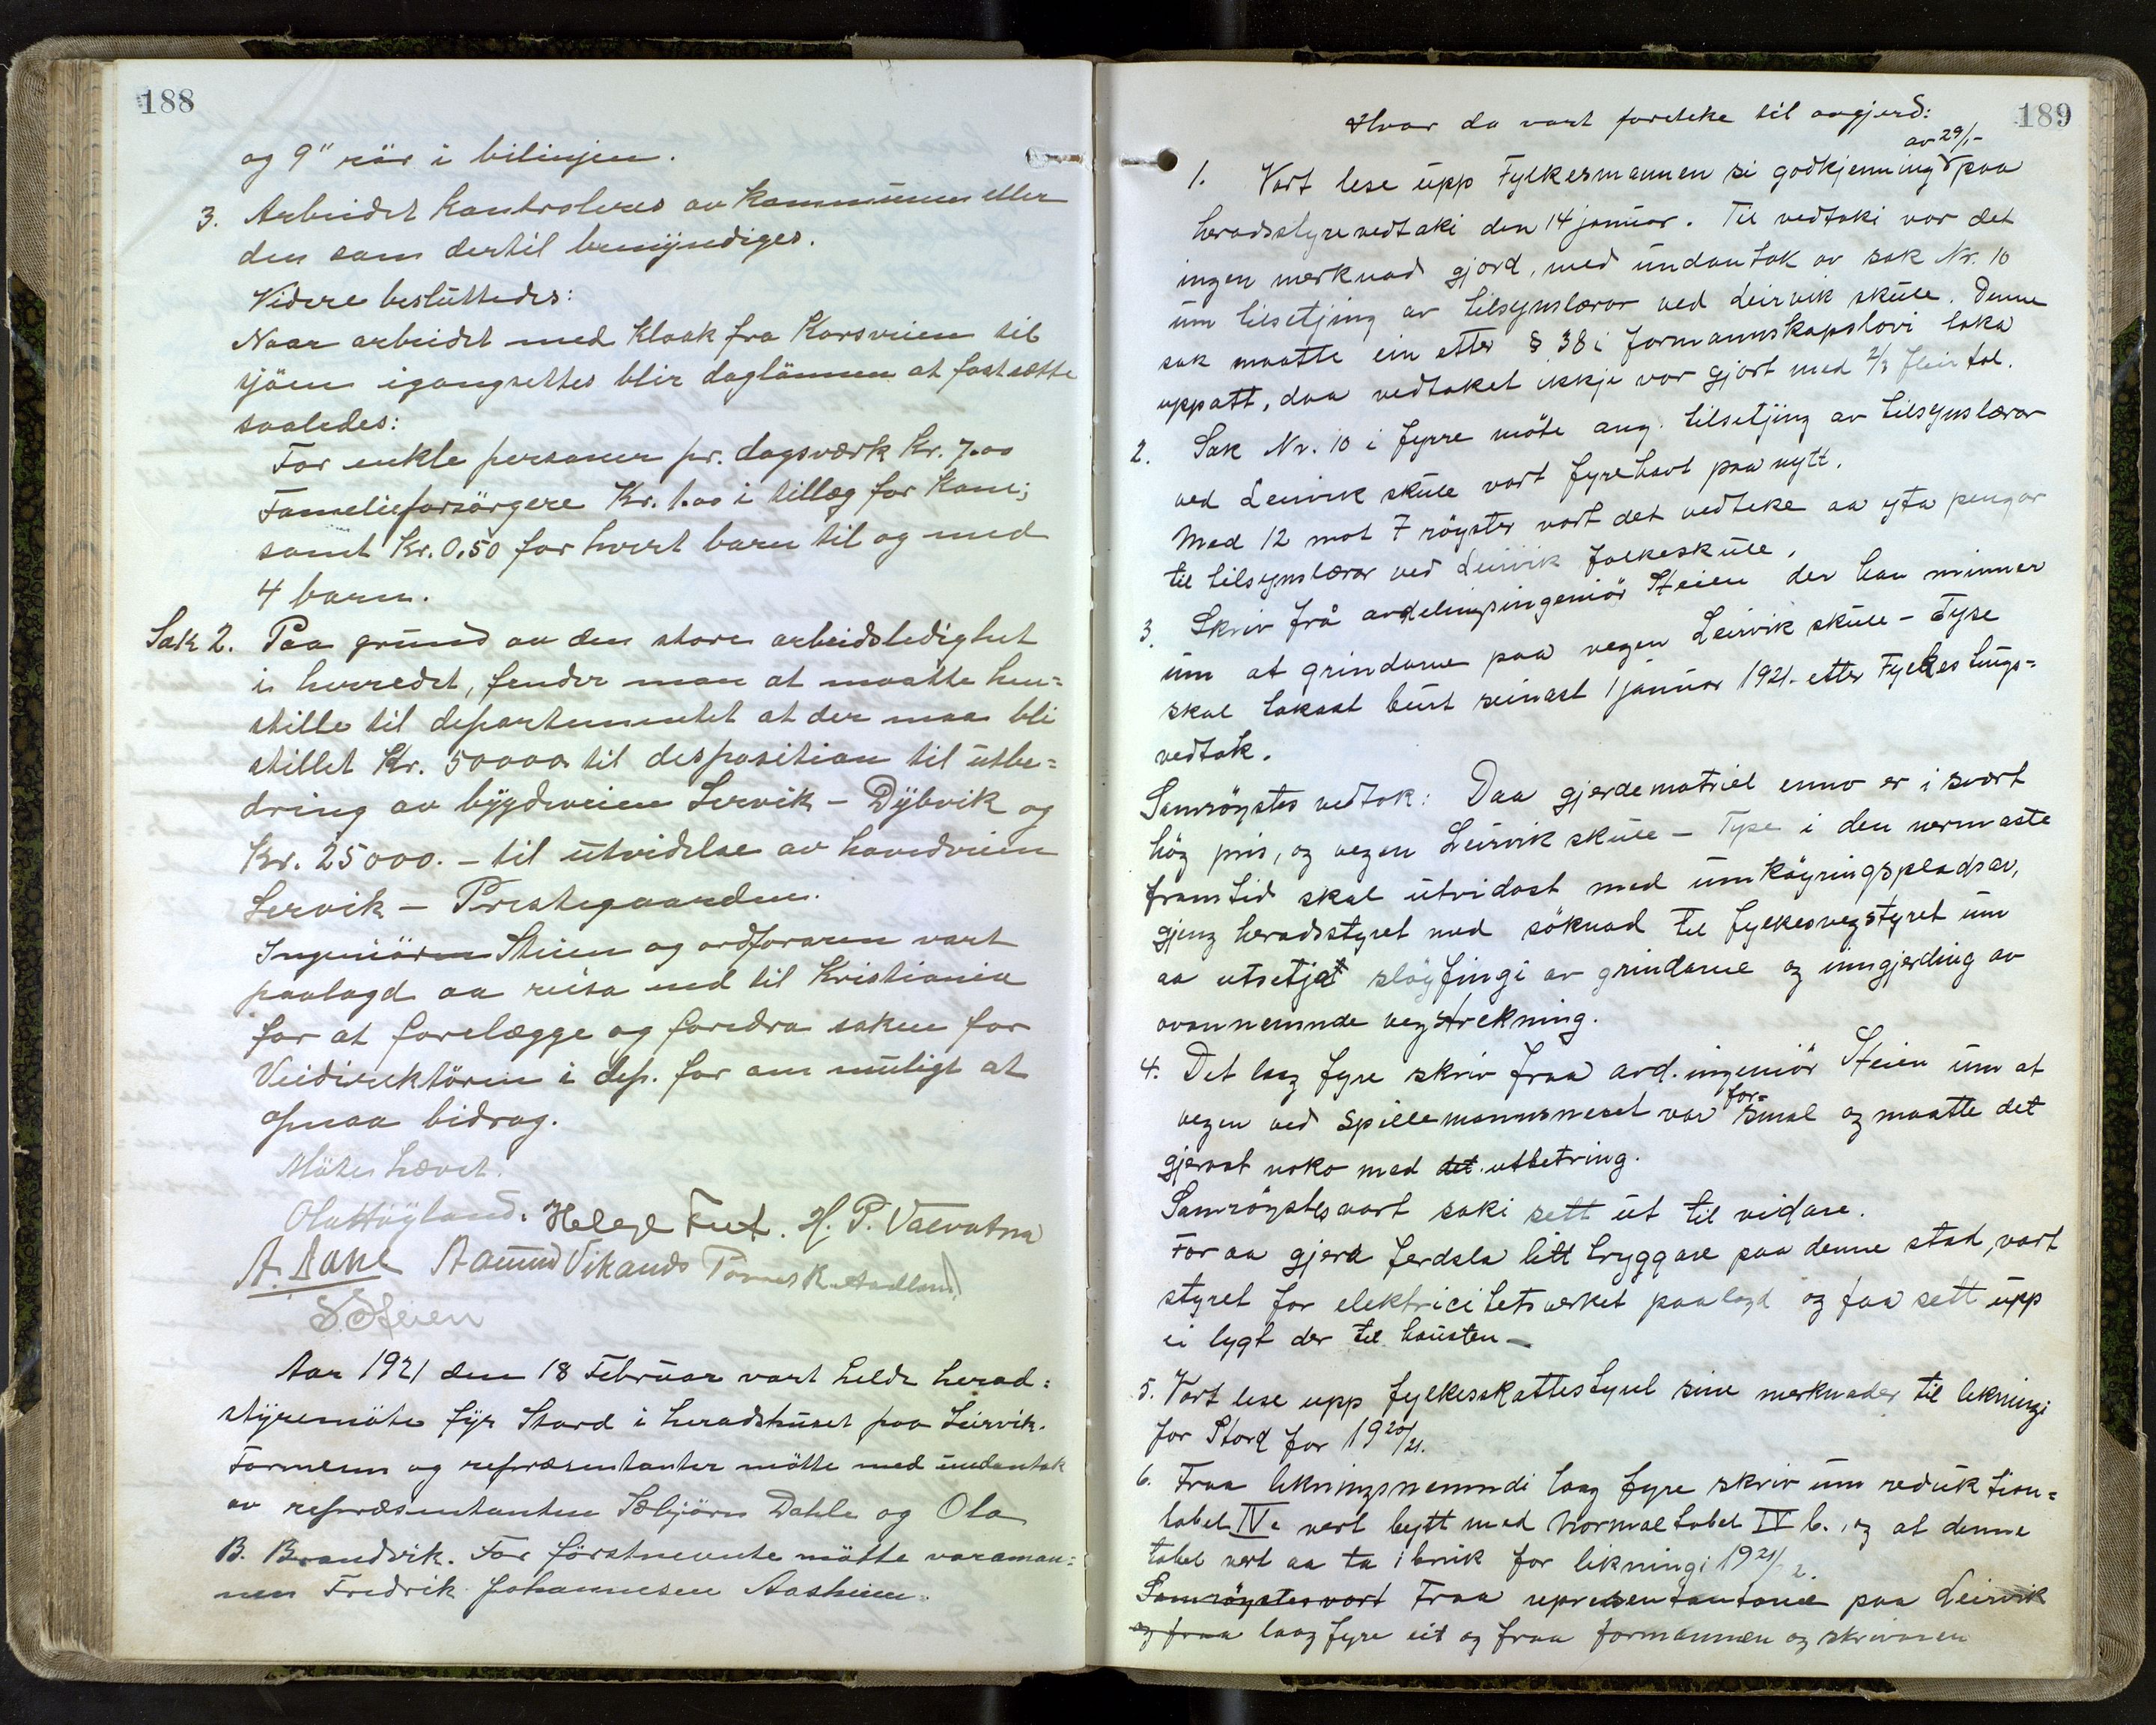 188
og 9" rör i bilinjen.
3. Arbeidet kontroleres av kommunen eller
den som dertil bemyndiges.
Videre besluttedes:
Naar arbeidet med kloak fra Korsveien til
sjöen igangsettes blir daglönnen at fastsætte
saaledes:
For enkle personer pr. dagsværk Kr. 7.00
Familieforsörgere Kr. 1.00 i tillæg for kone;
samt Kr. 0.50 for hvert barn til og med
4 barn.
Sak 2. Paa grund av den store arbeidsledighet
i herredet, fender man at maatte hen=
stille til departementet at der maa bli
stillet Kr. 50000 til desposition til utbe=
dring av bygdeveien Lervik – Dybvik og
Kr. 25000.- til utvidelse av hovedveien
Lervik – Prestegaarden.
Ingeniören Steien og ordföraren vart
paalagd aa reisa ned til Kristiania
for at forelægge og foredra saken for
Veidirektören i dep. for om muligt at
opnaa bidrag.
Möte hævet.
Ola Höyland. Helge Fut. H. P. Valvatna
A. Dahle Aamund Vikanes Tomas K. Aadland
S. Steien
Aar 1921 den 18 Februar vart helde herad=
styremöte fyr Stord i heradshuset paa Leirvik.
Formenn og repræsentanter mötte med undantak
av repræsentanten Sæbjörn Dahle og Ola
B. Brandvik. For förstnevnte mötte varaman=
nen Fredrik Johannesen Aasheim.
189
Hvor da vart foreteke til avgjerd:
av 29/1-
1. Vart lese upp Fylkesmannen si godkjenning paa
heradsstyrevedtaki den 14 januar. Til vedtaki var det
ingen merknad gjord, med undantak av sak Nr. 10
um tilsetjing av tilsynslærar ved Leirvik skule. Denne
sak maatte ein etter § 38 i formannskapslovi taka
uppatt, daa vedtaket ikkje var gjort med 2/3 fleirtal.
2. Sak Nr. 10 i fyrre möte ang. tilsetjing av tilsynslærar
ved Leirvik skule vart fyrehavt paa nytt.
Med 12 mot 7 röyster vart det vedteke aa yta pengar
til tilsynslærar ved Leirvik folkeskule.
3. Skriv frå avdelingsingeniör Steien der han minner
um at grindarne paa vegen Leirvik skule – Tyse
skal takast burt seinast 1 januar 1921 - etter Fylkestings=
vedtak.
Samröystes vedtok: Daa gjerdematriel enno er i svært
hög pris, og vegen Leirvik skule – Tyse i den nermaste
framtid skal utvidast med umköyringspladsar,
gjeng heradsstyret med söknad til fylkesvegstyret um
aa utsetjat slöyfingi av grindarne og inngjerding av
ovannemnde vegstrekning.
4. Det laag fyre skriv fraa avd. ingeniör Steien um at
vegen ved Spillemannsneset var for= smal og maatte det
gjerast noko med det utbetring.
Samröystes vart saki sett ut til vidare.
For aa gjera ferdsla litt tryggare paa denne stad, vart
styret for elektricitetsverket paalagd og faa sett upp
ei lygt der til hausten –
5. Vart lese upp fylkesskattestyret sine merknader til likningi
for Stord for 1920/21.
6. Fraa likningsnemndi laag fyre skriv um reduktion=
tabel IV c vert bytt med Normaltabel IV b., og at denne
tabel vert aa ta i bruk for likningi 1921/2.
Samröystes vart Fraa representantane paa Leirvik
og fraa laag fyre eit og fraa formannen og skrivaren